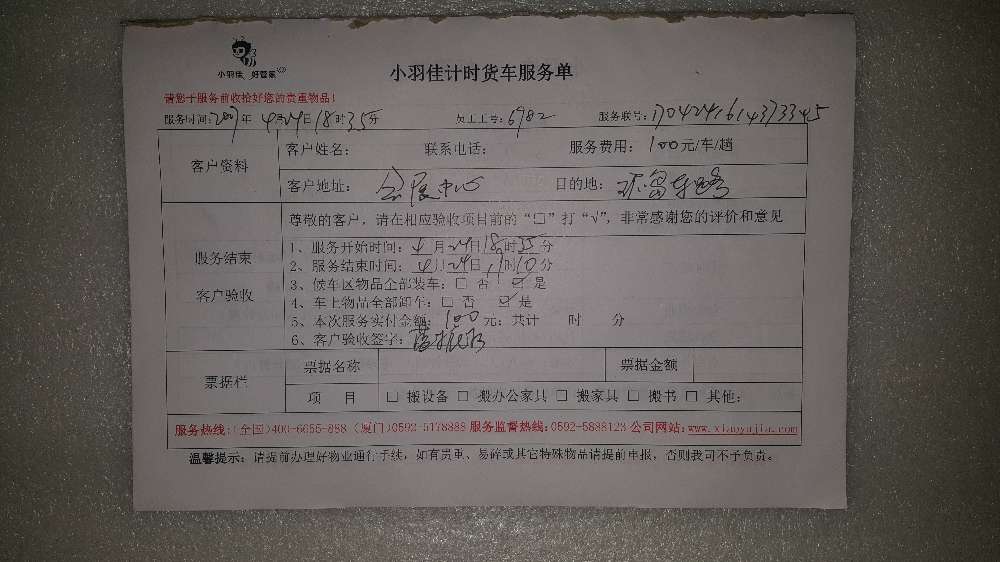 小羽佳 好管家
小羽佳计时货车服务单
请您于服务前收拾好您的贵重物品！
服务时间：2007年4月24日18时35分 员工工号：6982 服务联号：
客户资料 客户姓名： 联系电话： 服务费用：100元/车/趟
客户地址：会展中心 目的地：
尊敬的客户，请在相应验收项目前的“□”打“√”，非常感谢您的评价和意见
服务结束
客户验收
1、服务开始时间：4月24日18时35分
2、服务结束时间：4月24日 时10分
3、候车区物品全部装车：□ 否 ☑ 是
4、车上物品全部卸车：□ 否 ☑ 是
5、本次服务实付金额：100元；共计 时 分
6、客户验收签字：
票据栏 票据名称 票据金额
项 目 □ 搬设备 □ 搬办公家具 □ 搬家具 □ 搬书 □ 其他：
服务热线：(全国)400-6655-888 (厦门)0592-5178888 服务监督热线：0592-5888123 公司网站：www.xiaoyujia.com
温馨提示：请提前办理好物业通行手续，如有贵重、易碎或其它特殊物品请提前申报，否则我司不予负责。